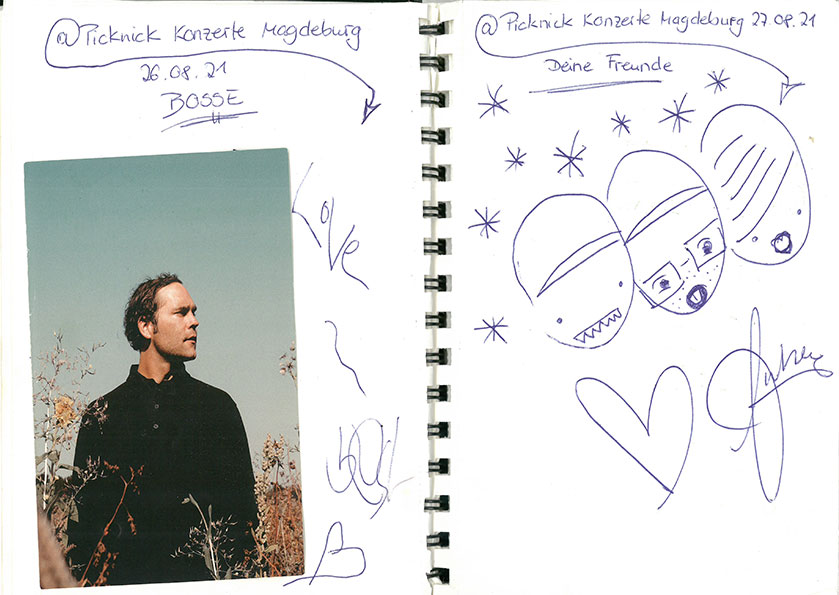 @ Picknick Konzerte Magdeburg
26.08.21
BOSSE
Love
@ Picknick Konzerte Magdeburg 27.08.21
Deine Freunde